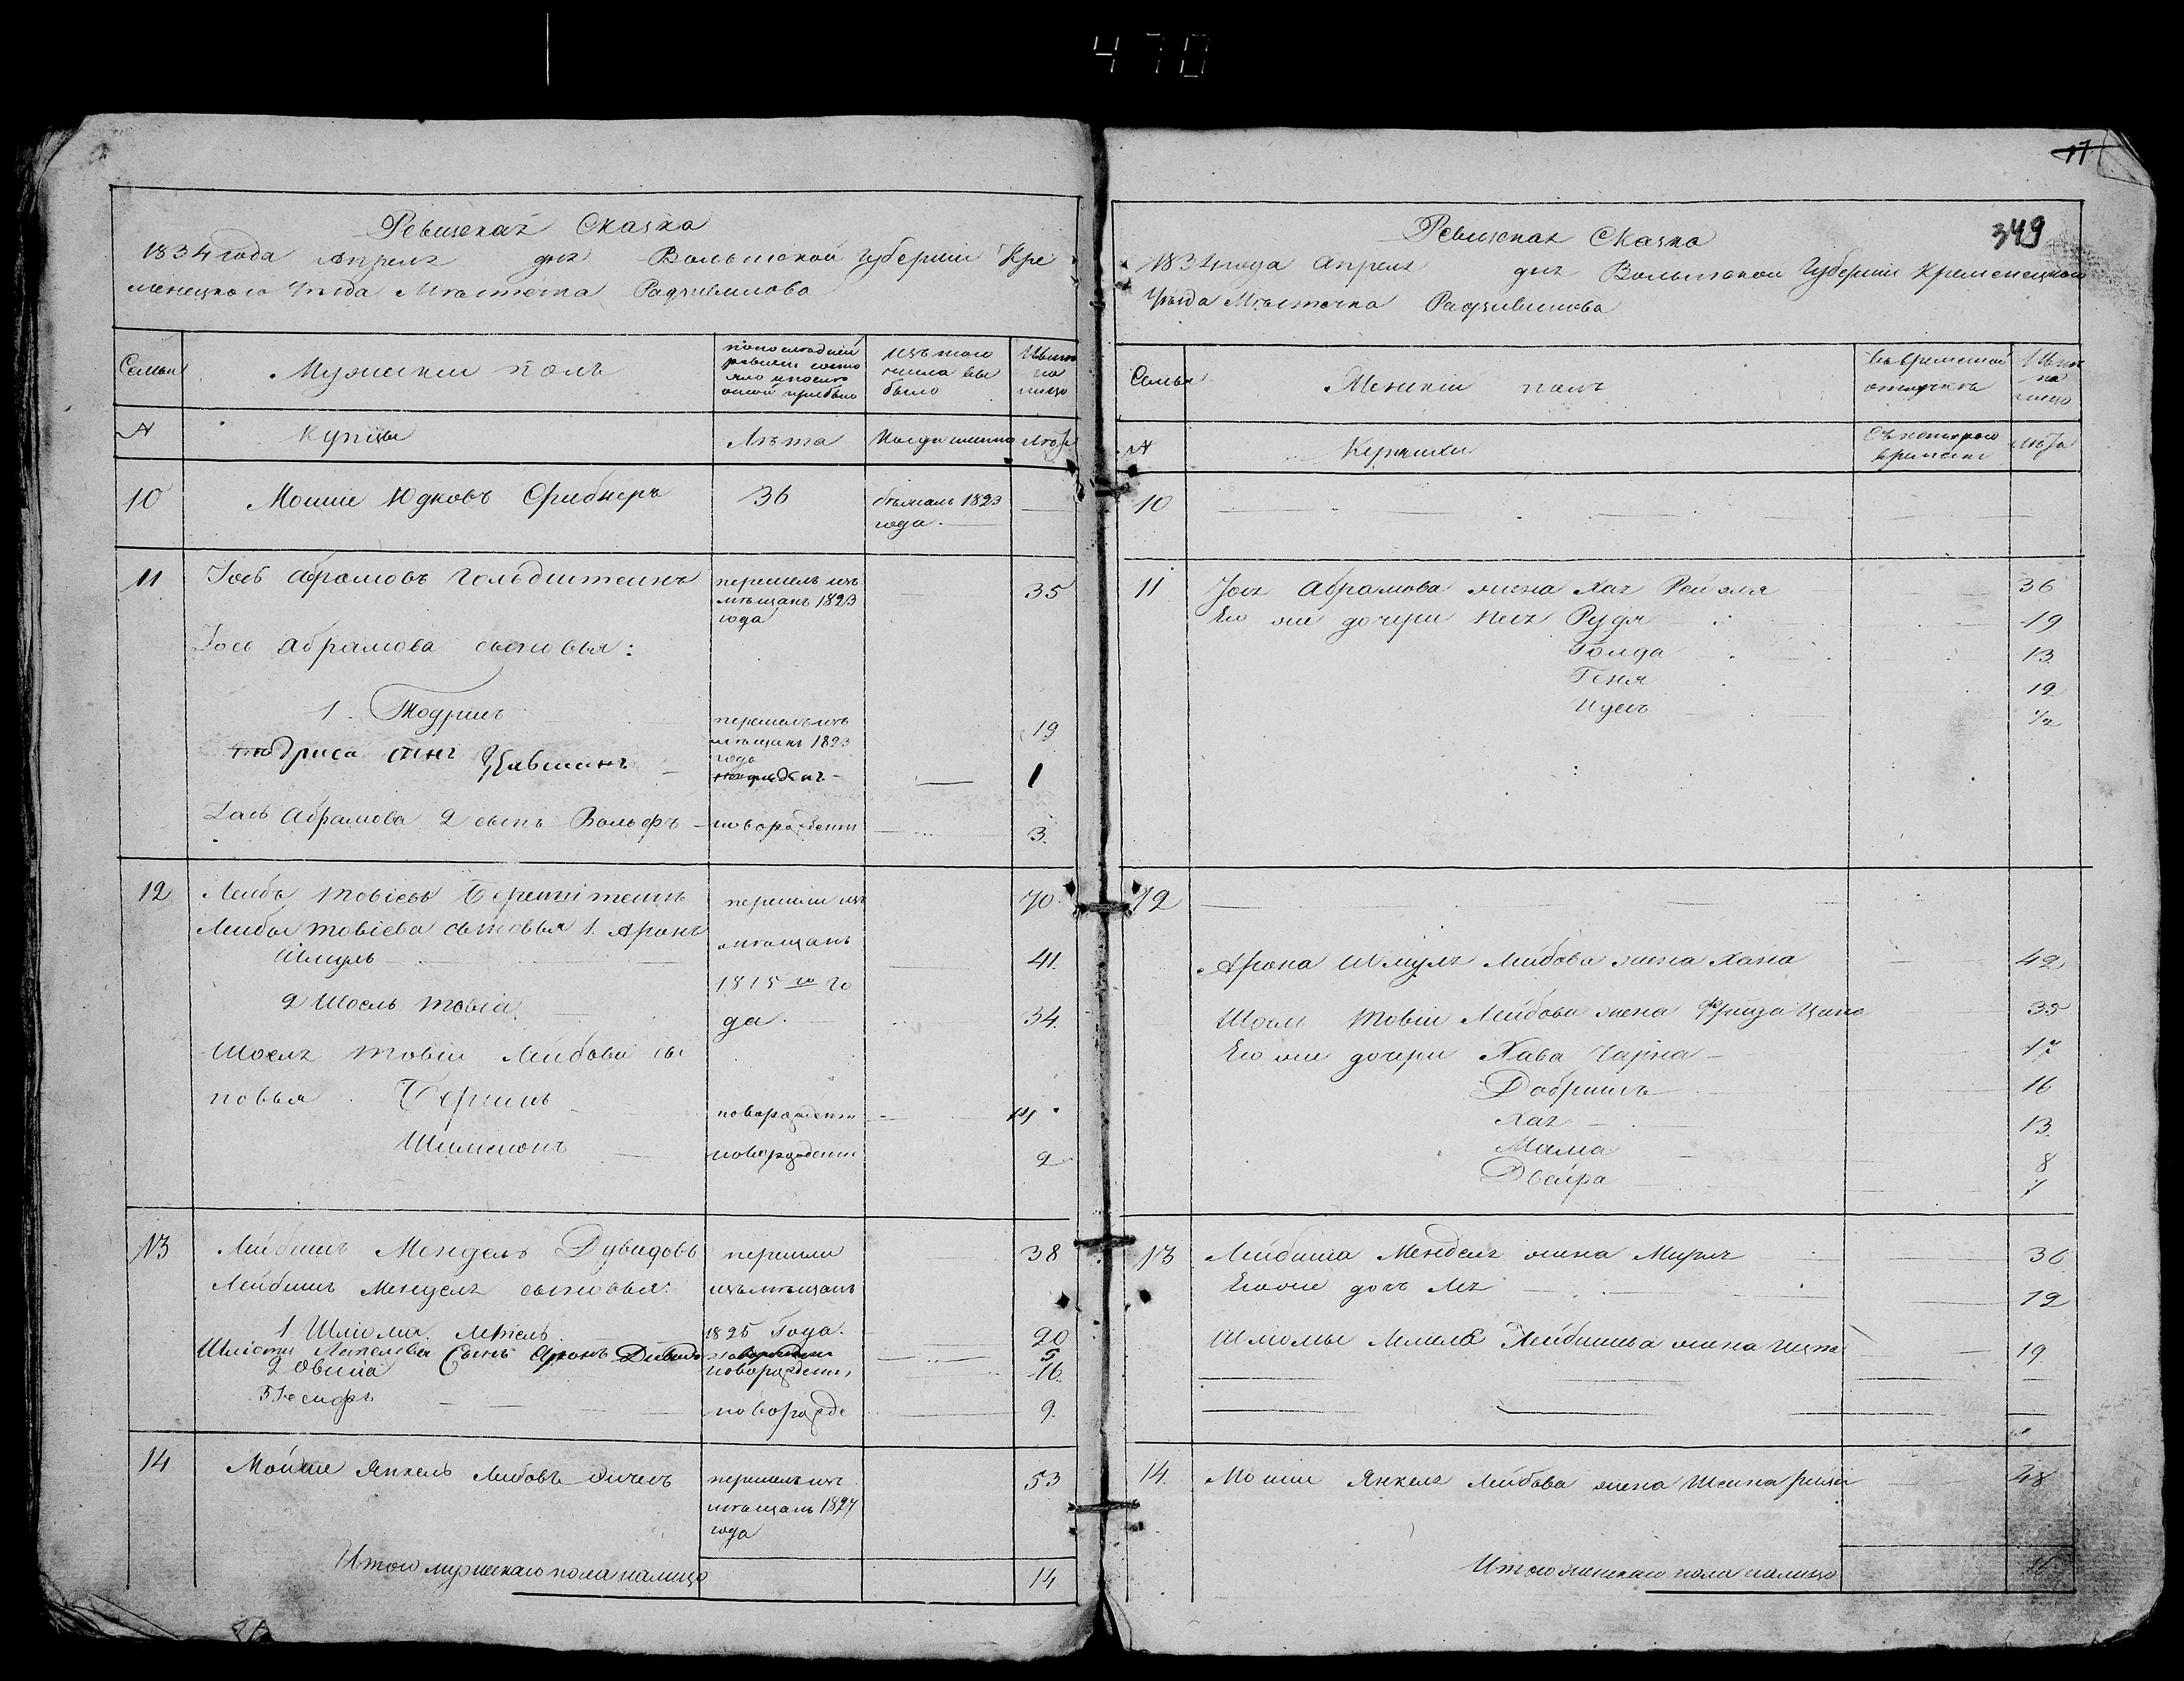 470
Ревизская Сказка
1834 года Апреля дня Волынской Губернии Кре
менецкого Уезда Местечка Радзивилова
Семьи
Мужеский полъ
по последней
ревизии состо
яло и после
оной прибыло
изъ того
числа вы
было
Ныне
на
лицо
№
Купцы
Лета
Когда именно
Лета
10
Мошие Юдковъ Фрибнеръ
36
бежалъ 1823
года.
11
Iось Абрамовъ Гольдштеинъ
перешелъ изъ
мещанъ 1823
года
35
Iось Абрамова сыновья:
1. Тодрисъ
перешелъ изъ
мещанъ 1823
года
19
Тодриса сынъ
1
Iось Абрамова 2 сынъ Вольфъ
новорожденъ
3.
12
Лейба Товiевъ Беренштеинъ
перешли изъ
70
Лейба Товiева сыновья 1. Аронъ
мещанъ
Шмуль
41.
1815 го го
2 Шоель Товiа
да.
34.
Шоеля Товiи Лейбова сы
новья Беришъ
новорожденъ
14
Шимонъ
новорожденъ
9
13
Лейбишъ Мендель Дувидовъ
перешли
38
Лейбишъ Менделя сыновья:
изъ мещанъ
1 Шлiома
1825 Года.
20
Сынъ Аронъ Дывидъ
новорожденъ
5
2 Овшiа
новорожденъ
16.
3 Iосифъ
новорожде
9.
14
Мойше Янкель Лейбовъ
перешелъ изъ
мещанъ 1827
года
53
Итого мужескаго пола налицо
14
17
349
Ревизская Сказка
1834 года Апреля дня Волынской Губернии Кременецкого
Уезда Местечка Радзивилова
Семьи
Женский полъ
Во временной
отлучке
Ныне
на
лицо
№
Купчихи
Съ котораго
времени
Лета
10
11
Iося Абрамова жена Хая Рейзля
36
Его же дочери Неся Рудя
19
Голда
13
Геня
12
1/2
12
Арона Шмуля Лейбова жена Хана
42
Шоеля Товiи Лейбова жена Фрида Цина
35
Его же дочери Хава Чарна
17
Добришъ
16
Хая
13
Мама
8
Двейра
7
13
Лейбиша Менделя жена Миря
36
Его же дочь Лея
12
Шлиомы Лейбишова жена
19
14.
Мошие Янкеля Лейбова жена Шеина
48
Итого женскаго пола налицо
16